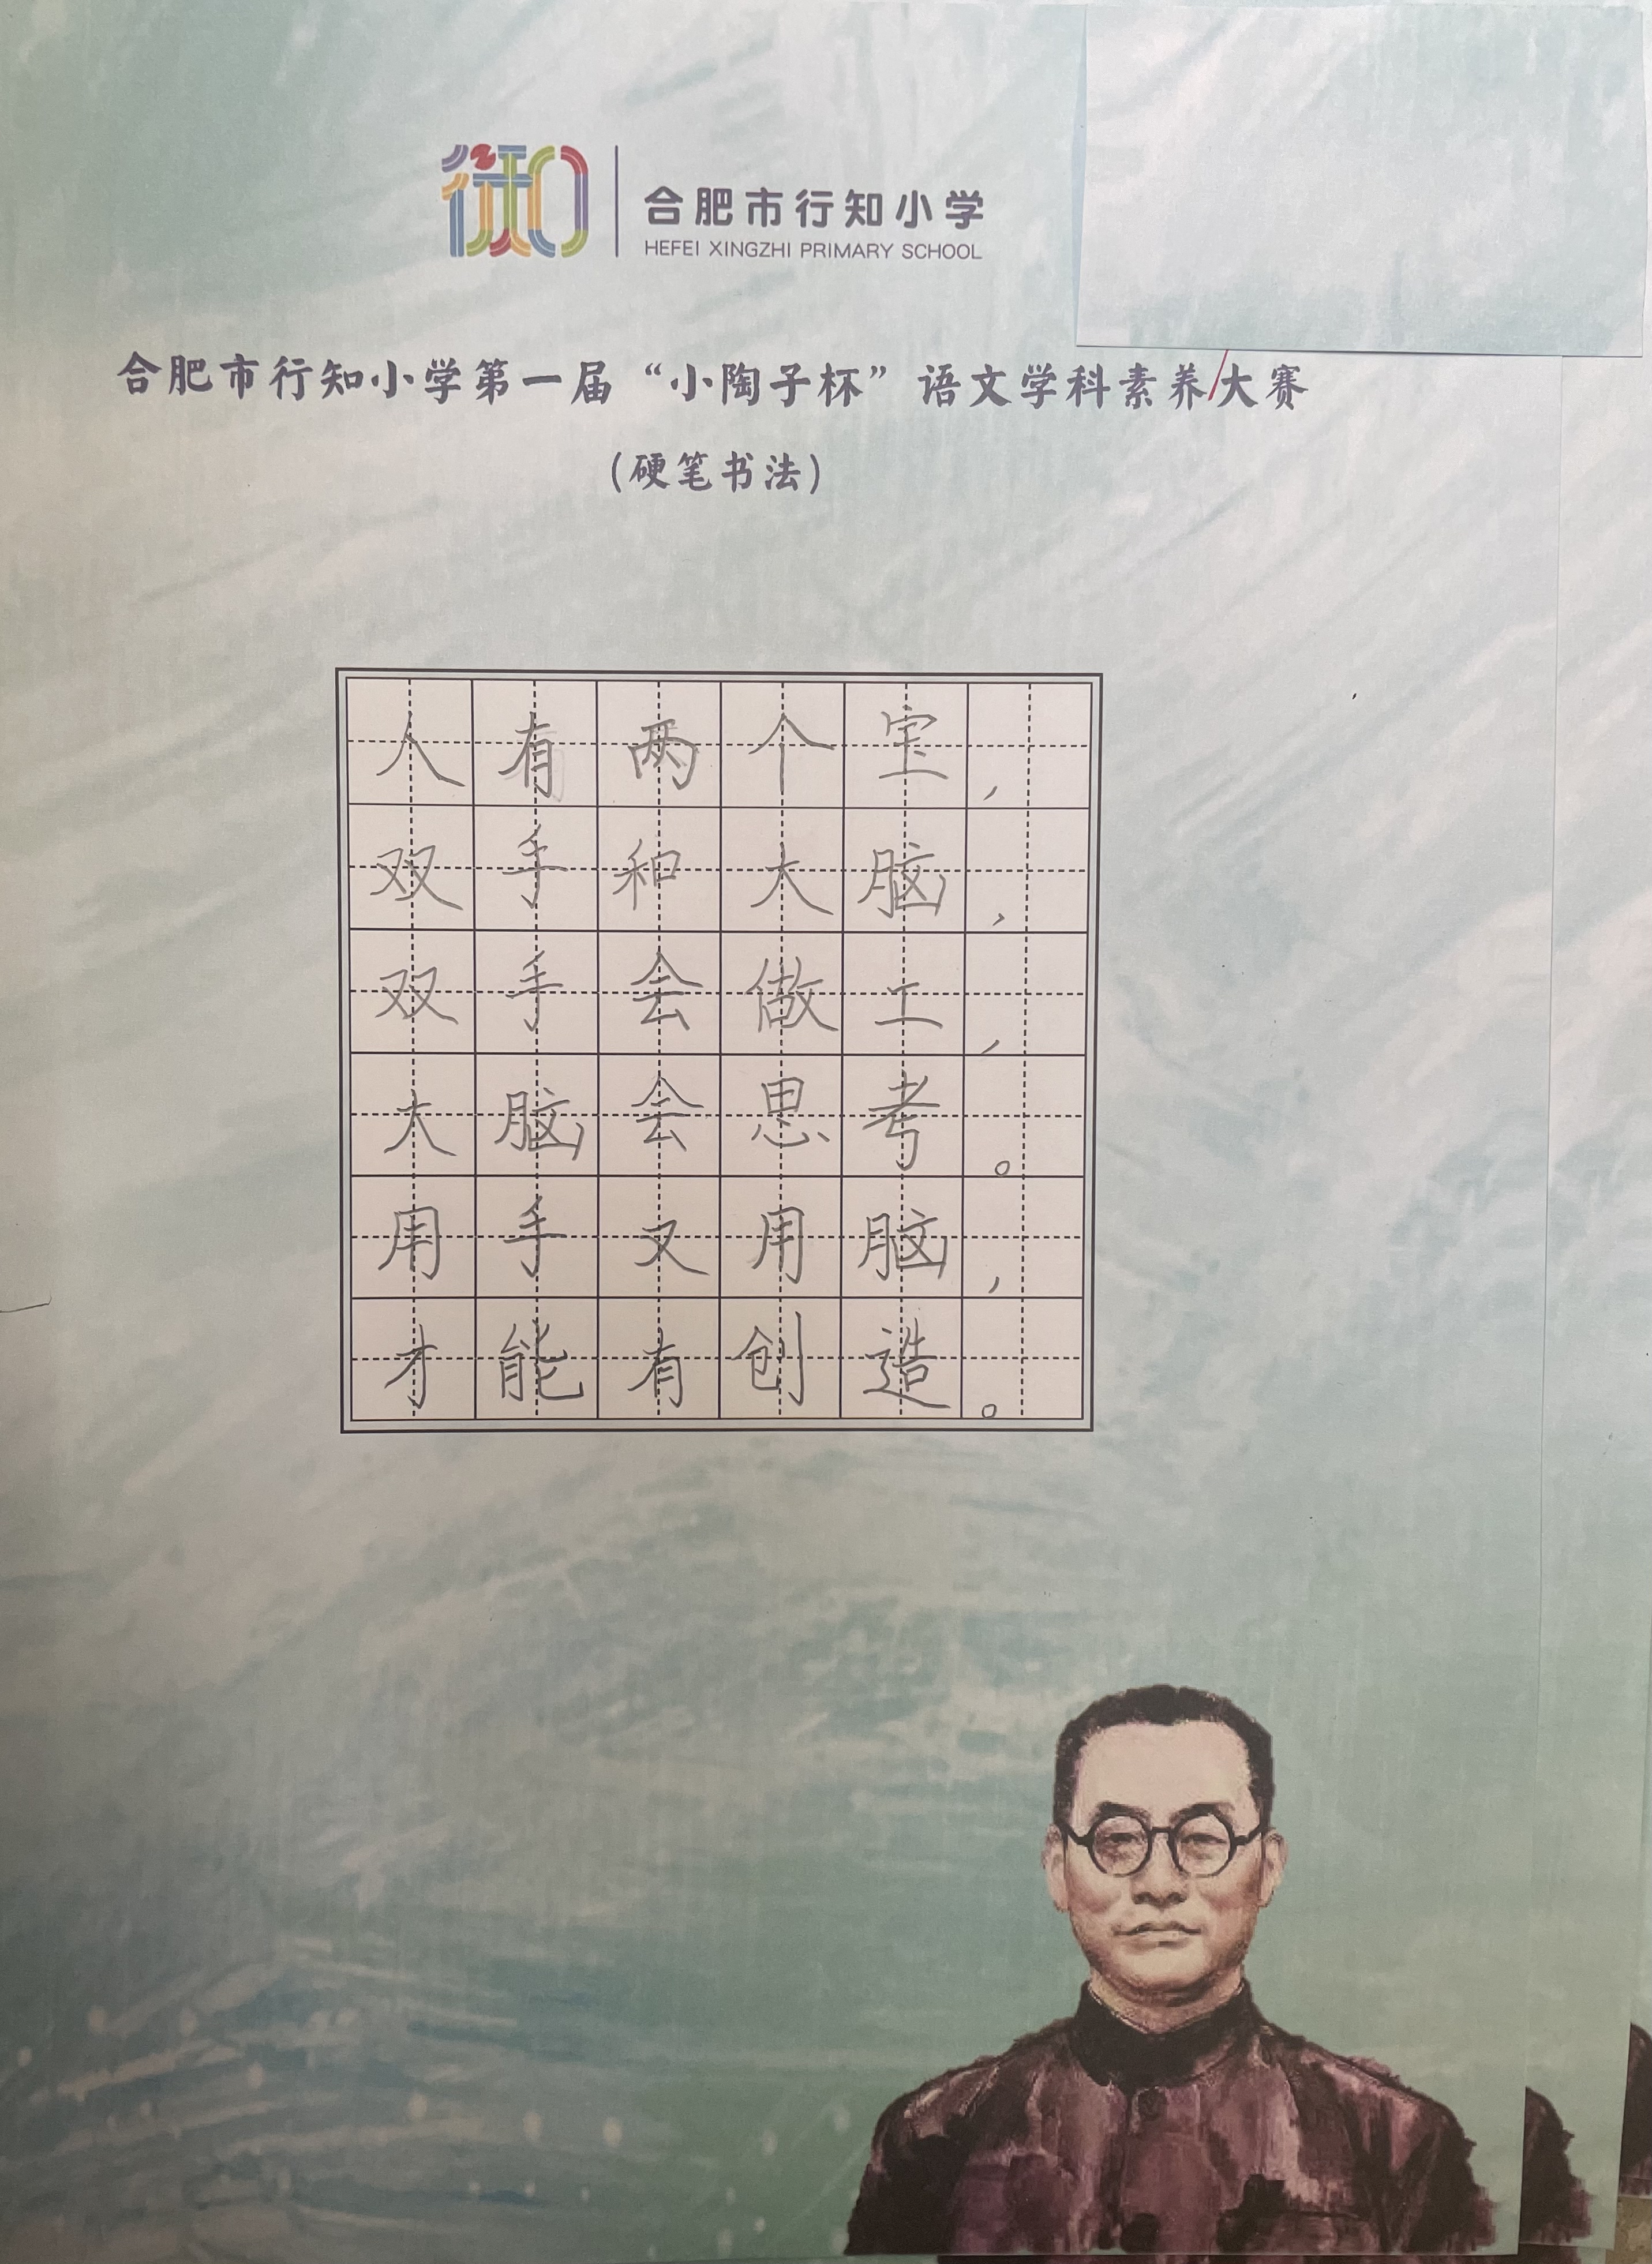 合肥市行知小学
HEFEI XINGZHI PRIMARY SCHOOL
合肥市行知小学第一届“小陶子杯”语文学科素养大赛
(硬笔书法)
人有两个宝，
双手和大脑，
双手会做工，
大脑会思考。
用手又用脑，
才能有创造。